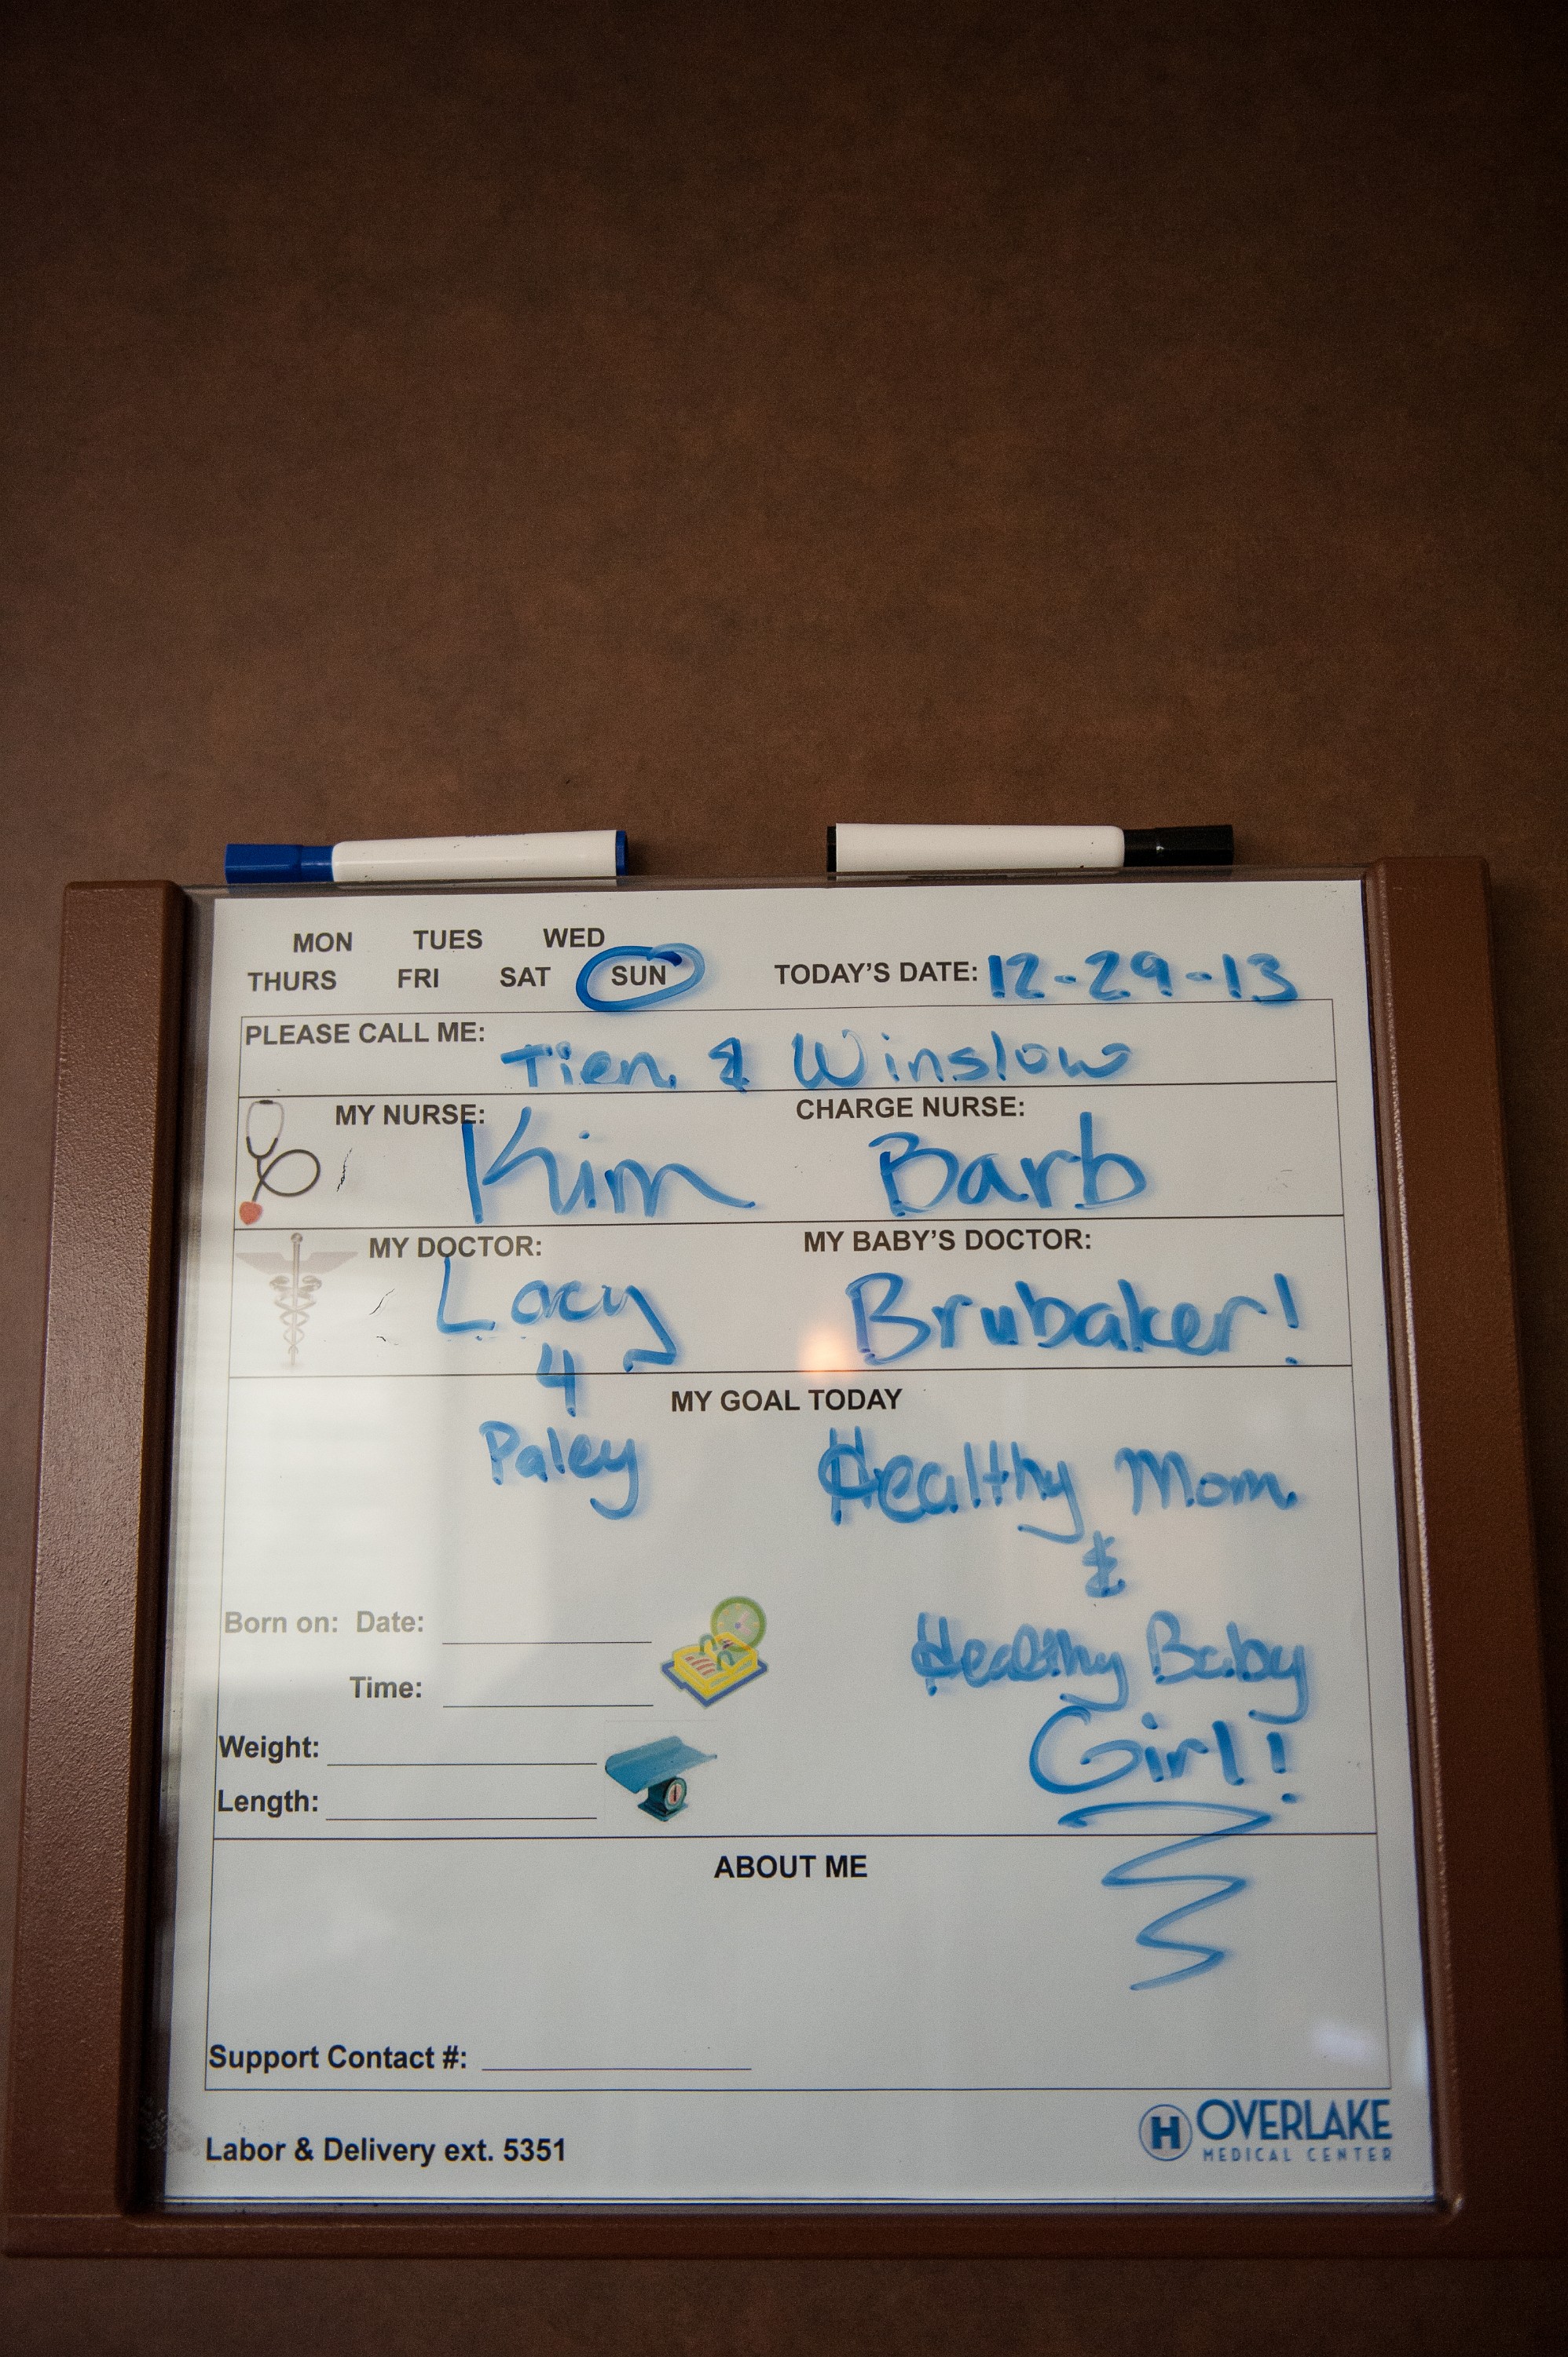 MON TUES WED
THURS FRI SAT SUN TODAY'S DATE: 12-29-13
PLEASE CALL ME: Tien & Winslow
MY NURSE: Kim CHARGE NURSE: Barb
MY DOCTOR: MY BABY'S DOCTOR:
Lacy Brubaker!
4
MY GOAL TODAY
Paley Healthy Mom
&
Born on: Date:
Healthy Baby
Time:
Girl!
Weight:
Length:
ABOUT ME
Support Contact #:
Labor & Delivery ext. 5351
H OVERLAKE
MEDICAL CENTER